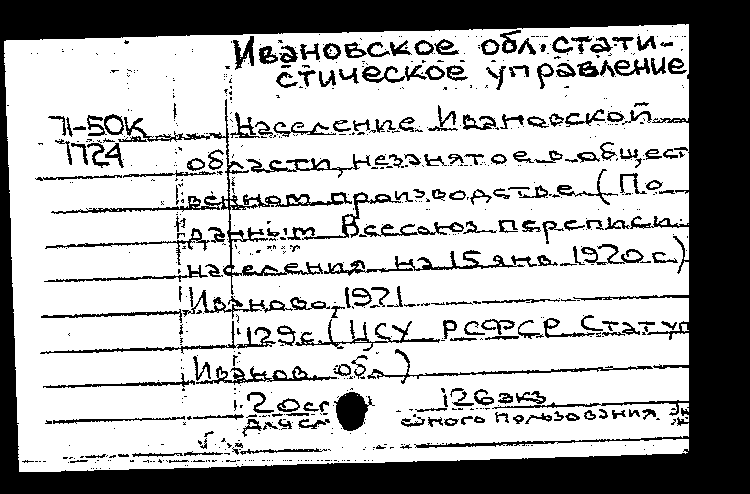 Ивановское обл. стати-
стическое управление
71-50К
1724
Население Ивановской
области, незанятое в общест
венном производстве. (По
данным Всесоюз. переписи
населения на 15 янв. 1970 г.)
Иваново, 1971.
129 с. (ЦСУ РСФСР Стат уп
Иванов. обл.)
20 см 126 экз.
Для ного пользования